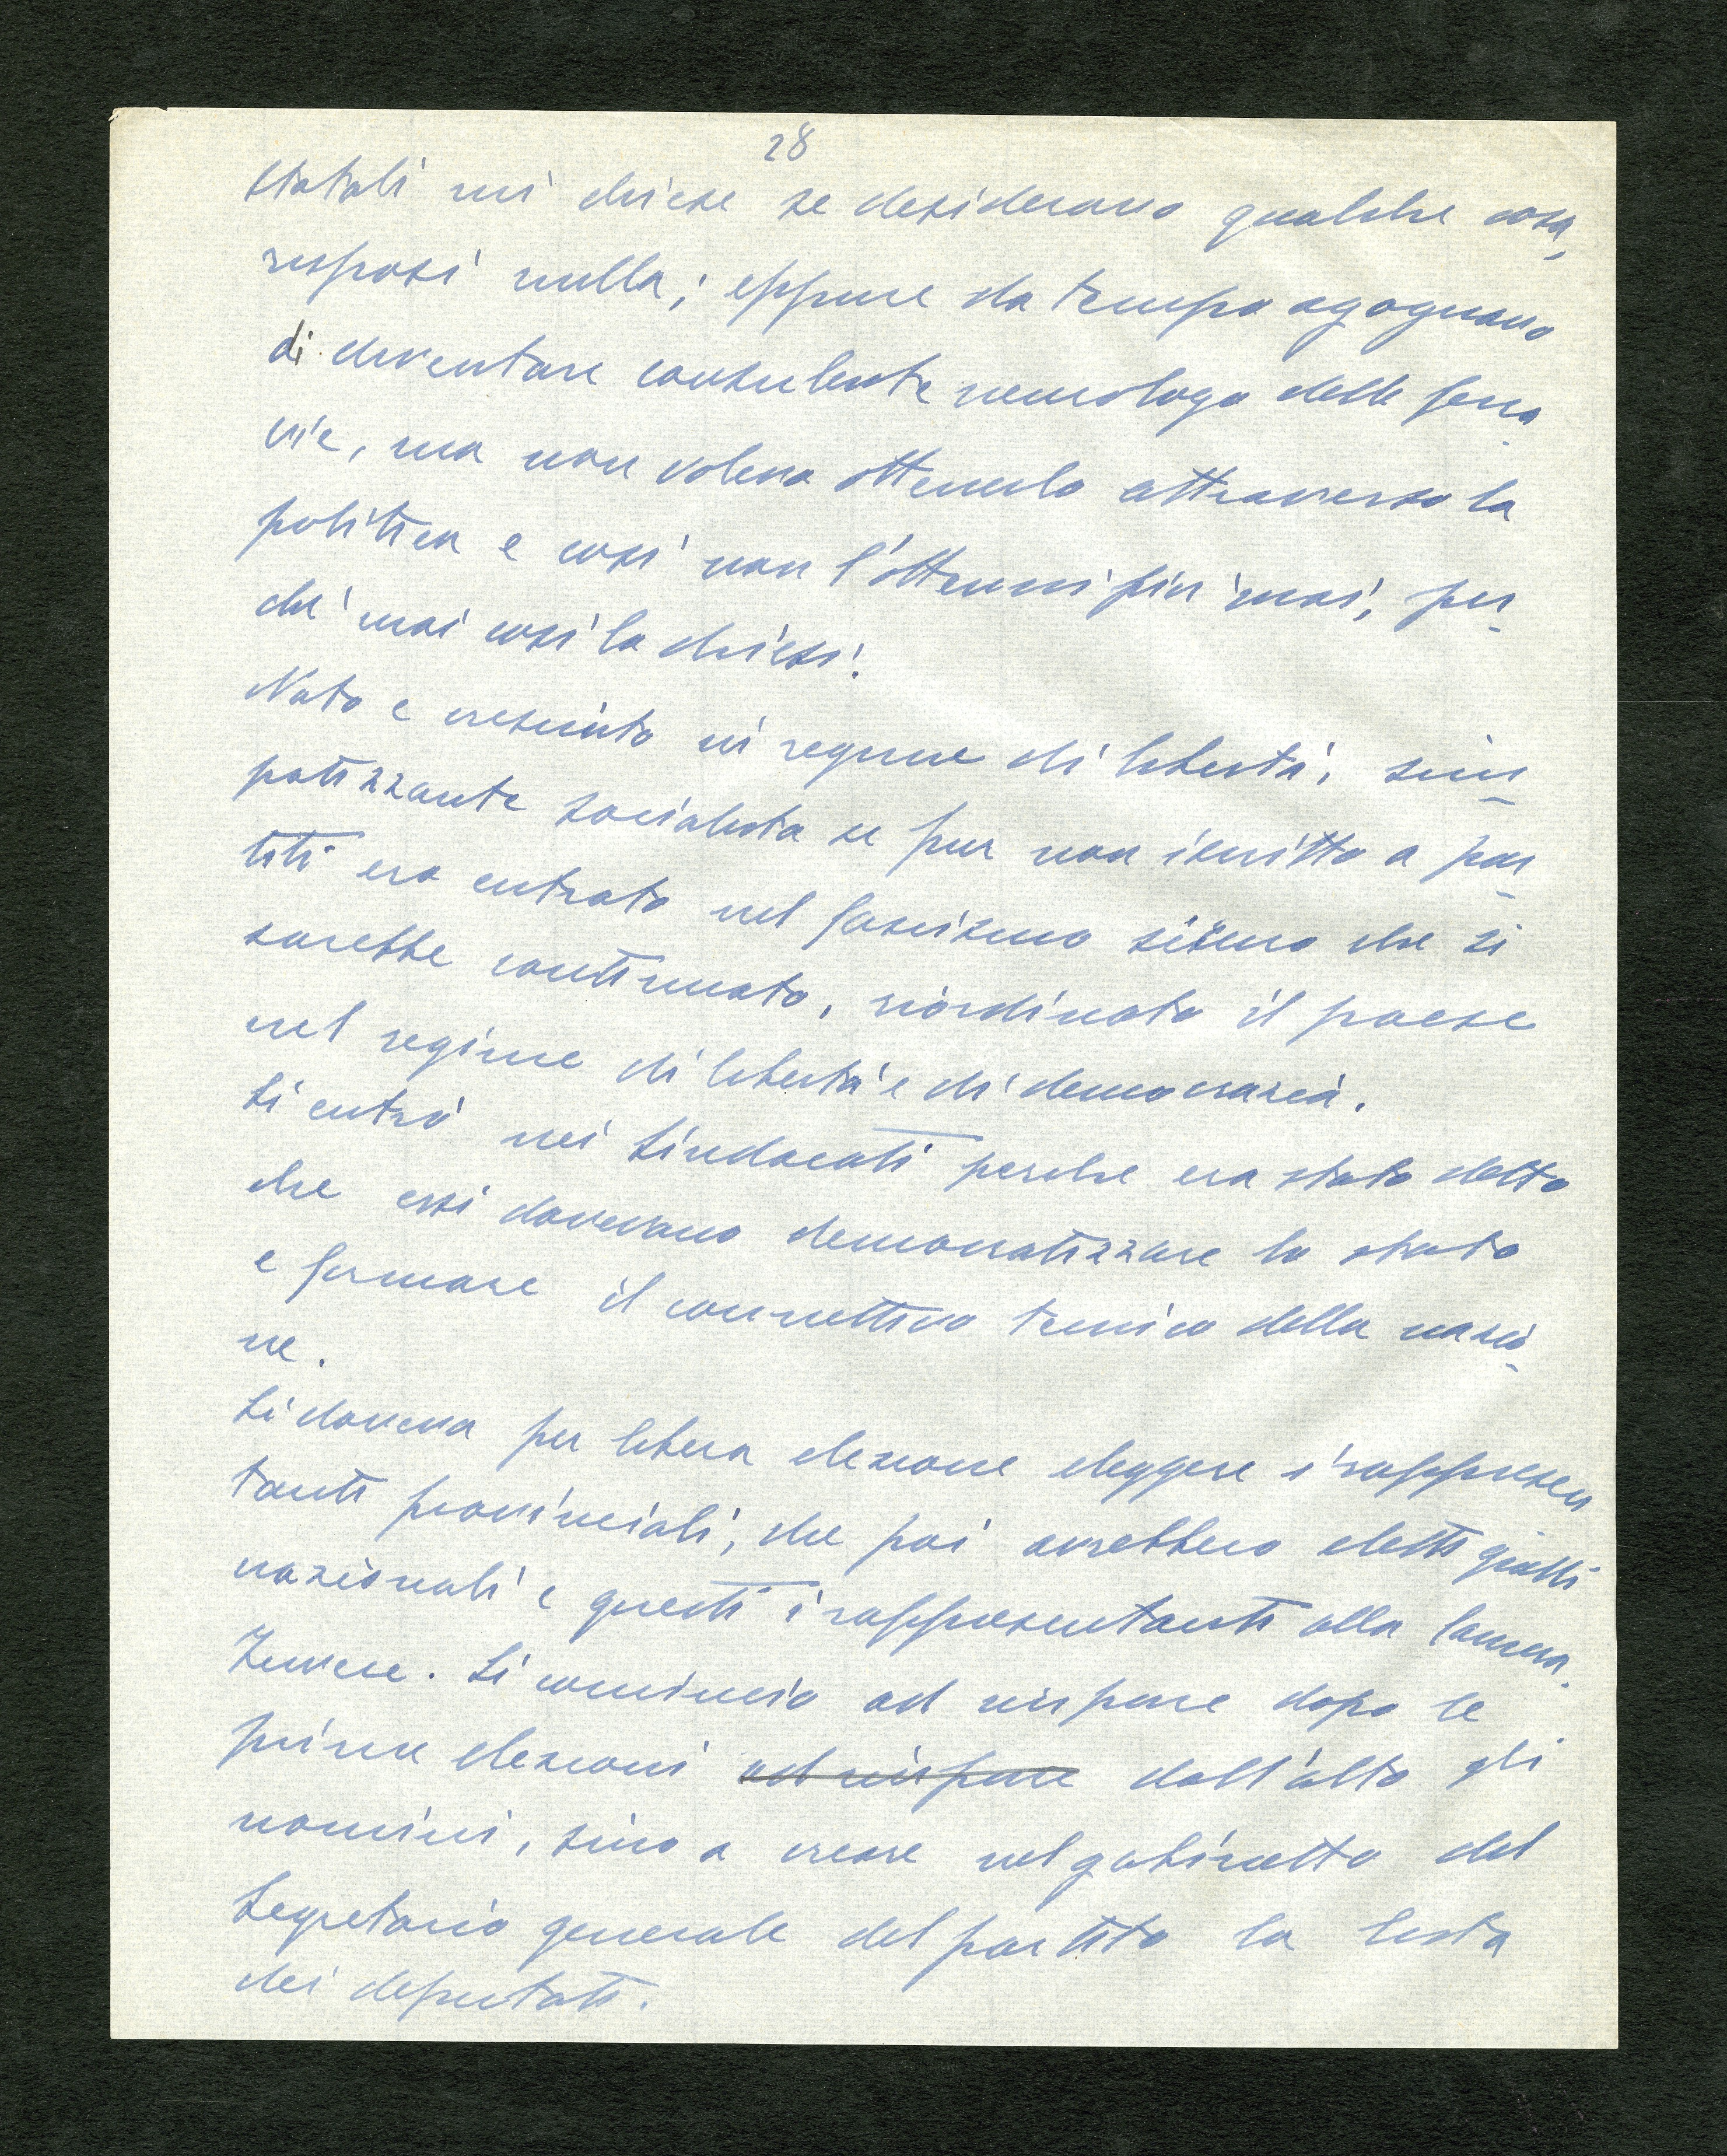 28
statali mi chiese se desideravo qualche cosa,
risposi nulla; eppure da tempo agognavo
di diventare consulente neurologo delle ferro-
vie, ma non volevo ottenerlo attraverso la
politica e così non l'ottenni più mai, per-
ché mai così lo chiesi!
Nato e cresciuto in regime di libertà, sim-
patizzante socialista se pur non iscritto a par-
titi ero entrato nel fascismo sicuro che si
sarebbe continuato, riordinato il paese
nel regime di libertà e di democrazia.
Si entrò nei sindacati perche era stato detto
che essi dovevano democratizzare lo stato
e formare il connettivo tecnico della nazio-
ne.
Si doveva per libera elezione eleggere i rappresen
tanti provinciali, che poi avrebbero eletti quelli
nazionali e questi i rappresentanti alla Camera.
Invece. Si cominciò ad imporre dopo le
prime elezioni ad imporre dall'alto gli
uomini, sino a creare nel gabinetto del
Segretario generale del partito la lista
dei deputati.